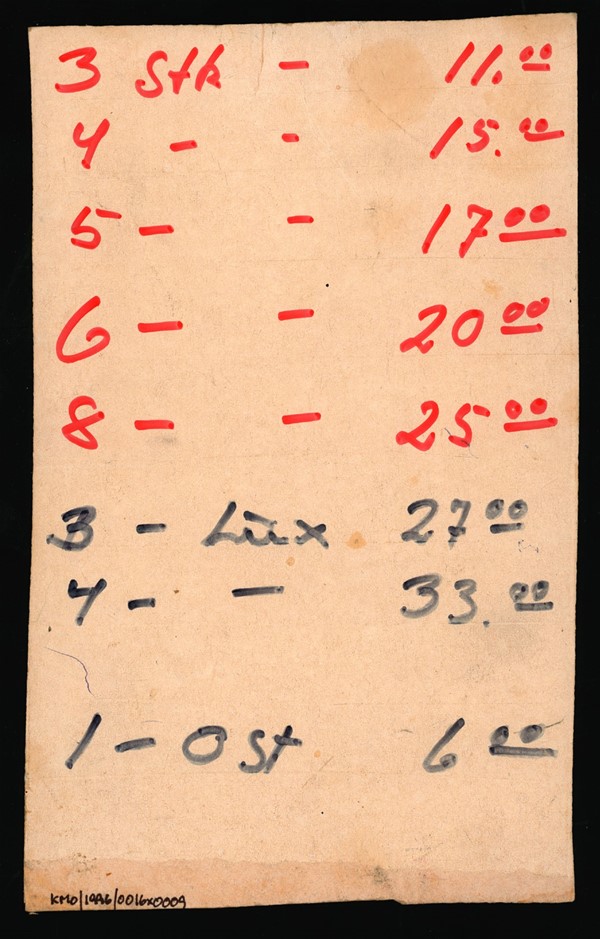 3 Stk - 11.00
4 - - 15.00
5 - - 17 00
6 - - 20 00
8 - - 25 00
3 - Lüx 27 00
4 - - 33.00
1 - Ost 6 00